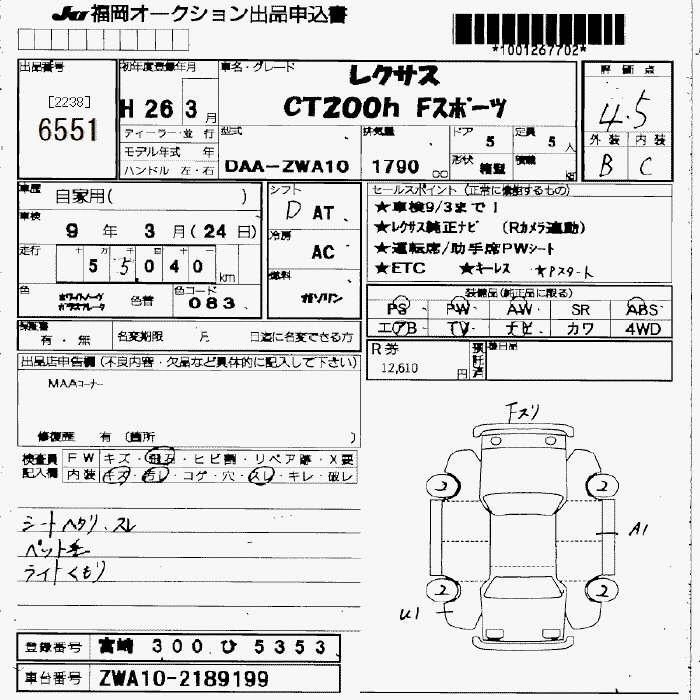 JU 福岡オークション出品申込書
*1001267702*
出品番号
[2238]
6551
初年度登録年月
H 26 3月
車名・グレード
レクサス
CT200h Fスポーツ
評価点
4.5
外装 内装
B C
ディーラー・並行
モデル年式 年
ハンドル 左・右
型式
DAA-ZWA10
排気量
1790 CC
ドア 5
定員 5人
形状 箱型
積載 kg
車歴 自家用( )
車検 9年 3月(24日)
走行 十 万 千 百 十 一
55,040 km
色 ホワイトノーヴァ
ガラスフレーク
色替
色コード
083
シフト
D AT
冷房
AC
燃料
ガソリン
セールスポイント (正常に機能するもの)
★車検9/3まで!
★レクサス純正ナビ (Rカメラ連動)
★運転席/助手席PWシート
★ETC ★キーレス ★Pスタート
装備品(純正品に限る)
PS PW AW SR ABS
エアB TV ナビ カワ 4WD
保証書
有・無
名変期限 月 日迄に名変できる方
R券
12,610円
預託済
後日品
出品店申告欄(不良内容・欠品など具体的に記入して下さい)
MAAコーナー
修復歴 有 (箇所 )
検査員記入欄
FW キズ・飛石・ヒビ割・リペア跡・X要
内装 キズ・汚レ・コゲ・穴・スレ・キレ・破レ
シートヘタリ、スレ
ペット毛
ライトくもり
Fスリ
2 2
A1
2 2
U1
登録番号 宮崎 300 ひ 5353
車台番号 ZWA10-2189199